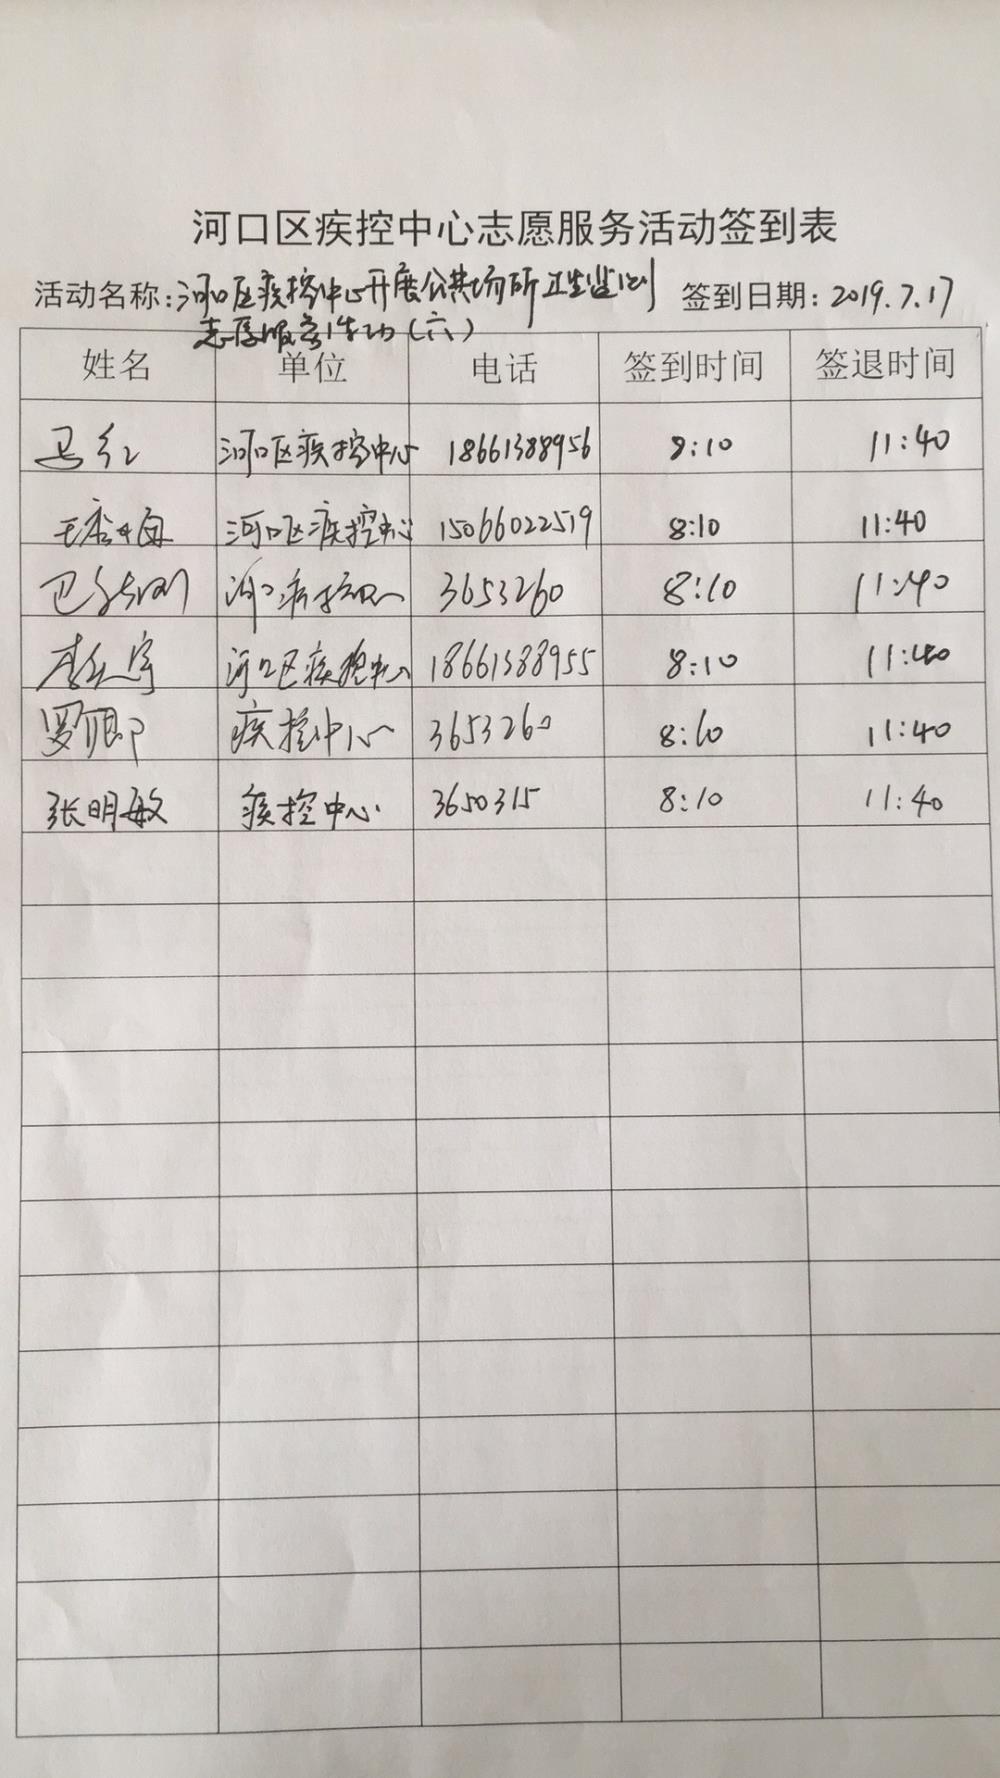 河口区疾控中心志愿服务活动签到表
活动名称:河口区疾控中心开展公共场所卫生监测 签到日期:2019.7.17
志愿服务活动(六)
姓名 单位 电话 签到时间 签退时间
马红 河口区疾控中心 18661388956 8:10 11:40
河口区疾控中心 15066022519 8:10 11:40
河口疾控中心 3653260 8:10 11:40
河口区疾控中心 18661388955 8:10 11:40
疾控中心 3653260 8:10 11:40
张明敏 疾控中心 3650315 8:10 11:40